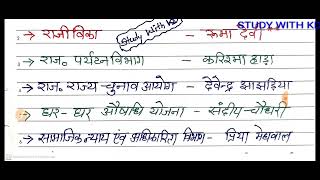 STUDY WITH KE
Study with KE
→ राजीविका - रूमा देवी
→ राज॰ पर्यटन विभाग - करिश्मा हाड़ा
→ राज॰ राज्य चुनाव आयोग - देवेन्द्र झाझड़िया
→ घर-घर औषधि योजना - संदीप चौधरी
→ सामाजिक न्याय एवं अधिकारिता विभाग - प्रिया मेघवाल